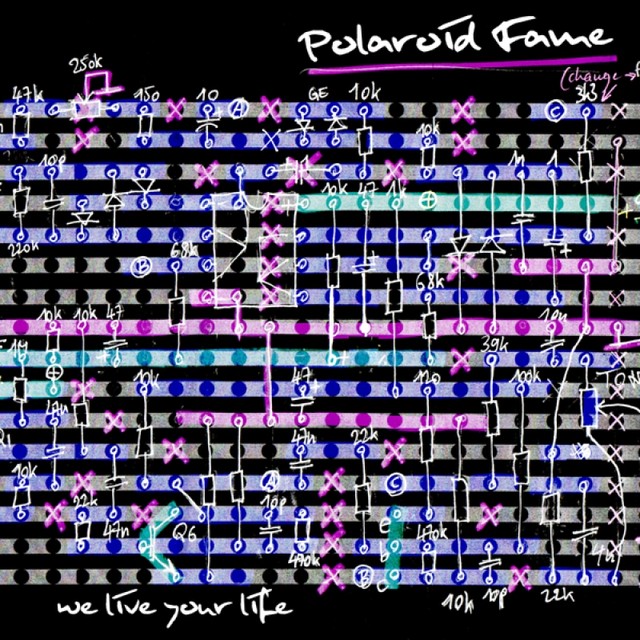 Polaroid Fame
250k
(change →
47k 150 10 A GE 10k C 3k3
10k
10p 1n 1
10k 47 1k
220k B 68k
68k
10k 10k 47 10n
1M 39k
10k 47 120 100k
47n
47n 22k
10k A C
22k 10p e
47n Q6 470k b 470k
B c
10k 10p 22k
we live your life